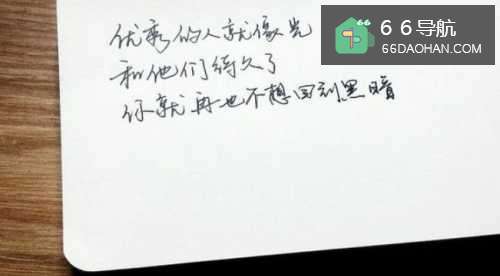 66导航
66DAOHAN.COM
66
优秀的人就像光
和他们待久了
你就再也不想回到黑暗